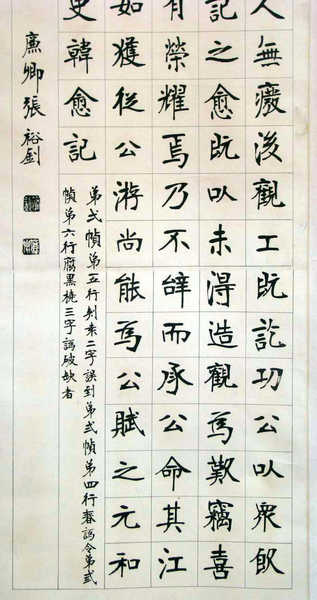 人無廢後觀工既訖功公以眾飲
記之愈既以未得造觀為歎竊喜
有榮耀焉乃不辭而承公命其江
如獲從公游尚能為公賦之元和
史韓愈記
弟弍幀弟五行刾袁二字誤到弟弍幀弟四行春譌令弟弍
幀弟六行腐黑橈三字譌破缺者
廉卿張裕釗